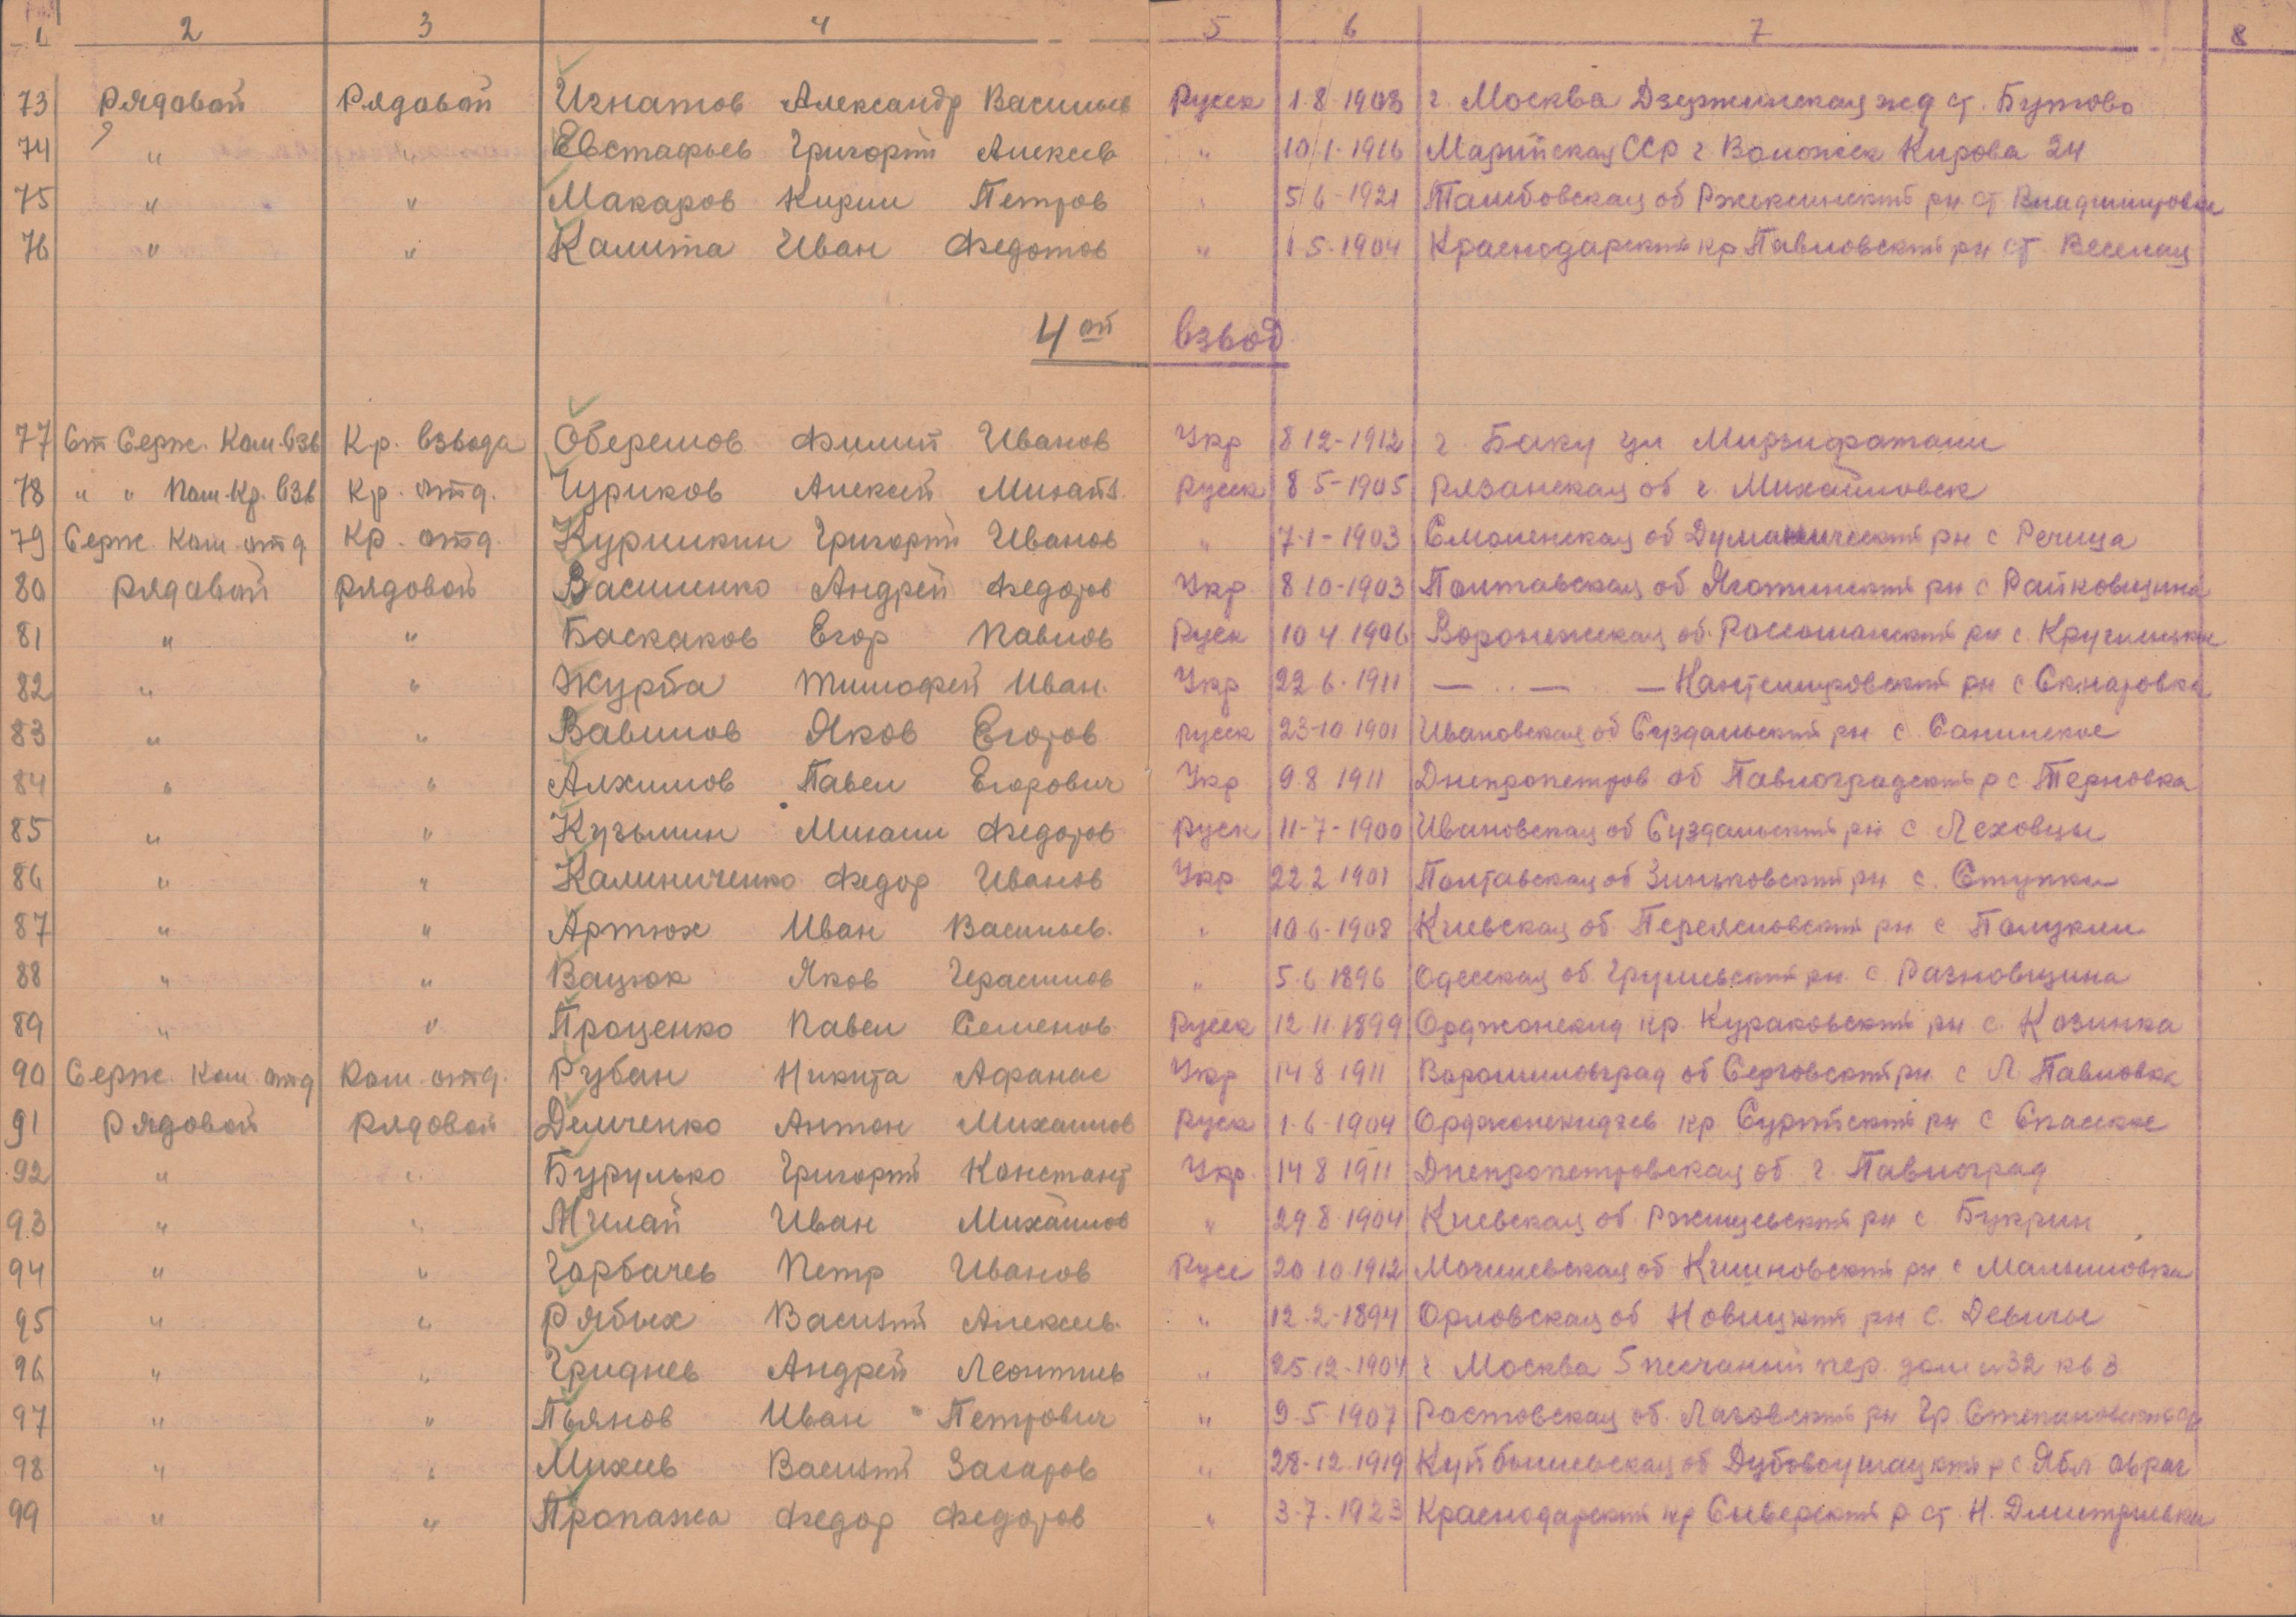 1 2 3 4 5 6 7 8
73 Рядовой Рядовой Игнатов Александр Васильев Русск 1·8·1908 г. Москва Дзержинская жд ст. Бутово
74 " " Евстафьев Григорий Алексеев " 10·1·1916 Марийская ССР г. Воложск Кирова 24
75 " " Макаров Кирил Петров " 5 6-1921 Тамбовская об Ржексинский рн ст Владимировка
76 " " Калита Иван Федотов " 1·5·1904 Краснодарский кр Павловский рн ст Веселая
4ой взвод
77 Ст Серж. Ком. взв Кр. взвода Оберемов Филип Иванов Укр 8 12-1912 г. Баку ул Мирзифатали
78 " " Пом. Кр. взв Кр. отд. Чуриков Алексей Михайл. Русск 8 5-1905 Рязанская об г. Михайловск
79 Серж. Ком отд Кр. отд. Курилкин Григорий Иванов " 7·1-1903 Смоленская об Думиничский рн с Речица
80 Рядовой Рядовой Василенко Андрей Федоров Укр 8 10-1903 Полтавская об Яготинский рн с Райковщина
81 " " Баскаков Егор Павлов Руск 10 4 1906 Воронежская об. Россошанский рн с.
82 " " Журба Тимофей Иван. Укр 22 6·1911 — " — — Кантемировский рн с
83 " " Вавилов Яков Егоров Русск 23-10 1901 Ивановская об Суздальский рн с. Санинское
84 " " Алхимов Павел Егорович Укр 9·8 1911 Днепропетров об Павлоградский р с Терновка
85 " " Кузьмин Михаил Федоров Руск 11-7-1900 Ивановская об Суздальский рн с Леховцы
86 " " Калиниченко Федор Иванов Укр 22 2 1901 Полтавская об Зиньковский рн с. Ступки
87 " " Артюх Иван Васильев. " 10·6·1908 Киевская об Переясловский рн с Полужки
88 " " Вацюк Яков Герасимов " 5·6 1896 Одесская об. рн с Разновщина
89 " " Проценко Павел Семенов Русск 12 11 1899 Орджонекид кр. Кураковский рн с. Козинка
90 Серж. Ком отд Ком. отд. Рубан Никита Афанас Укр 14 8 1911 Ворошиловград об Серговский рн с Л Павловка
91 Рядовой Рядовой Демченко Антон Михаилов Руск 1·6·1904 Орджонекидзев кр рн с Спасское
92 " " Бурулько Григорий Констант Укр. 14 8 1911 Днепропетровская об. г. Павлоград
93 " " Милай Иван Михайлов " 29 8·1904 Киевская об. Ржищевский рн с Букрин
94 " " Горбачев Петр Иванов Русс 20 10 1912 Могилевская об Климовский рн с Малышовка
95 " " Рябых Василий Алексеев. " 12·2-1894 Орловская об рн с. Девичье
96 " " Гриднев Андрей Леонтьев " 25 12-1904 г Москва 5 песчаный пер. дом n32 кв 3
97 " " Пьянов Иван Петрович " 9·5·1907 Ростовская об. рн Гр.
98 " " Михеев Василий Захаров " 28-12 1919 Куйбышевская об р с Ябл овраг
99 " " Пропажа Федор Федоров " 3·7·1923 Краснодарский кр Северский р ст. Н. Дмитриевка